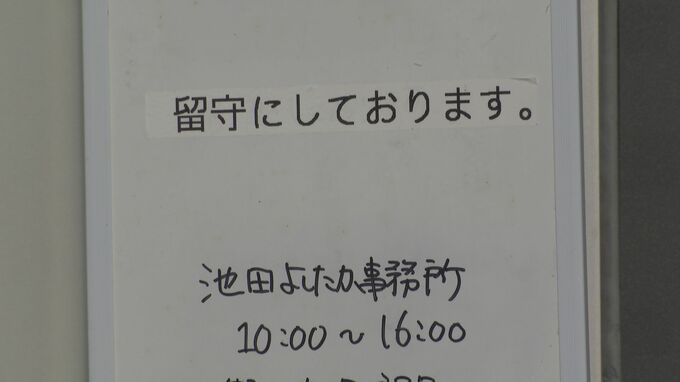 留守にしております。
池田よしたか事務所
10:00～16:00